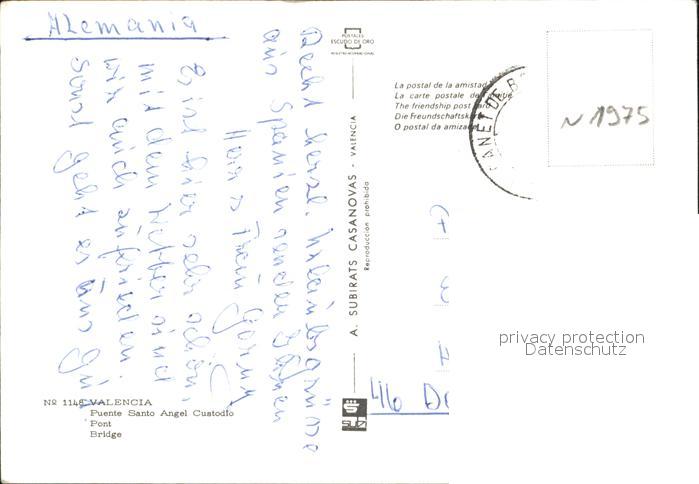 Alemania
Recht herzl. Urlaubsgrüsse
aus Spanien senden Ihnen
Herr u. Frau
Es ist hier sehr schön,
mit dem Wetter sind
wir auch zufrieden.
Sonst geht es uns gut
POSTALES
ESCUDO DE ORO
La postal de la amistad
La carte postale de
The friendship post card
Die Freundschaftska
O postal da amizade
A. SUBIRATS CASANOVAS - VALENCIA
Reproducción prohibida
ANET DE B
N 1975
privacy protection
Datenschutz
46 Do
SUBI
Nº 1148 VALENCIA
Puente Santo Angel Custodio
Pont
Bridge